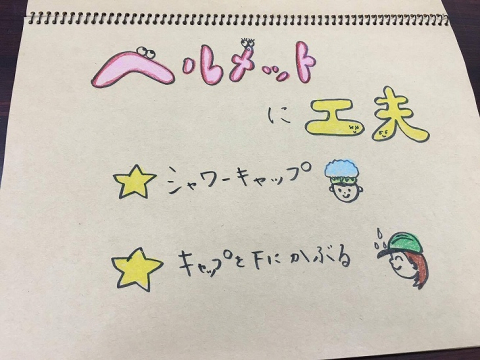 ヘルメット
に工夫
シャワーキャップ
キャップを下にかぶる